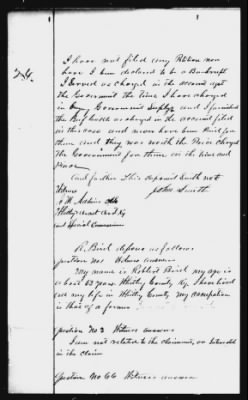 24.
I have not filed any Petition nor
have I been declared to be a Bankrupt
I served as charged in the account agst
the Government the time I have charged
in Government Supplys and I furnished
the Beef Cattle as charged in the account filed
in this case and never have been Paid for
them and they was worth the Price charged
the Government for them at the time and
Place
And further This deponent saith not
Witness John Smith
Whitley County Ky
and Special Commissioner
R. Bird deposes as follows
Question No 1 Witness answers
My name is Robert Bird my age is
about 63 years Whitley County Ky. I have lived
all my life in Whitley County my occupation
is that of a farmer
Question No 2 Witness answers
I am not related to the claimant, or Interested
in the claim
Question No 66 Witness answers